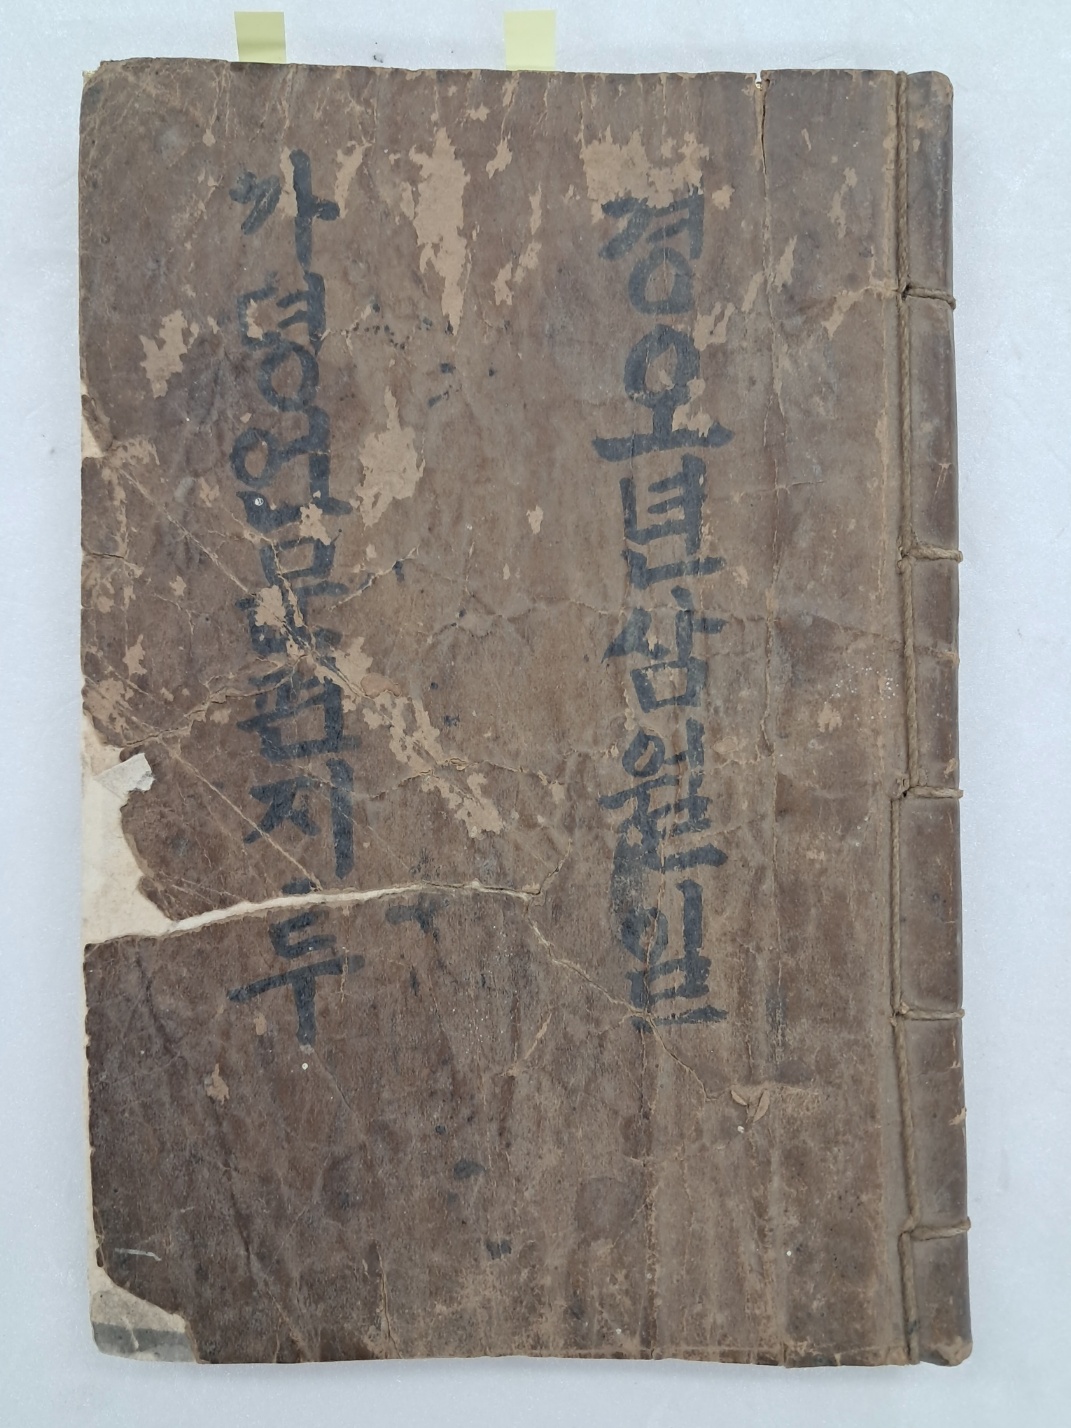 경오년삼월일
가뎡언문편지투